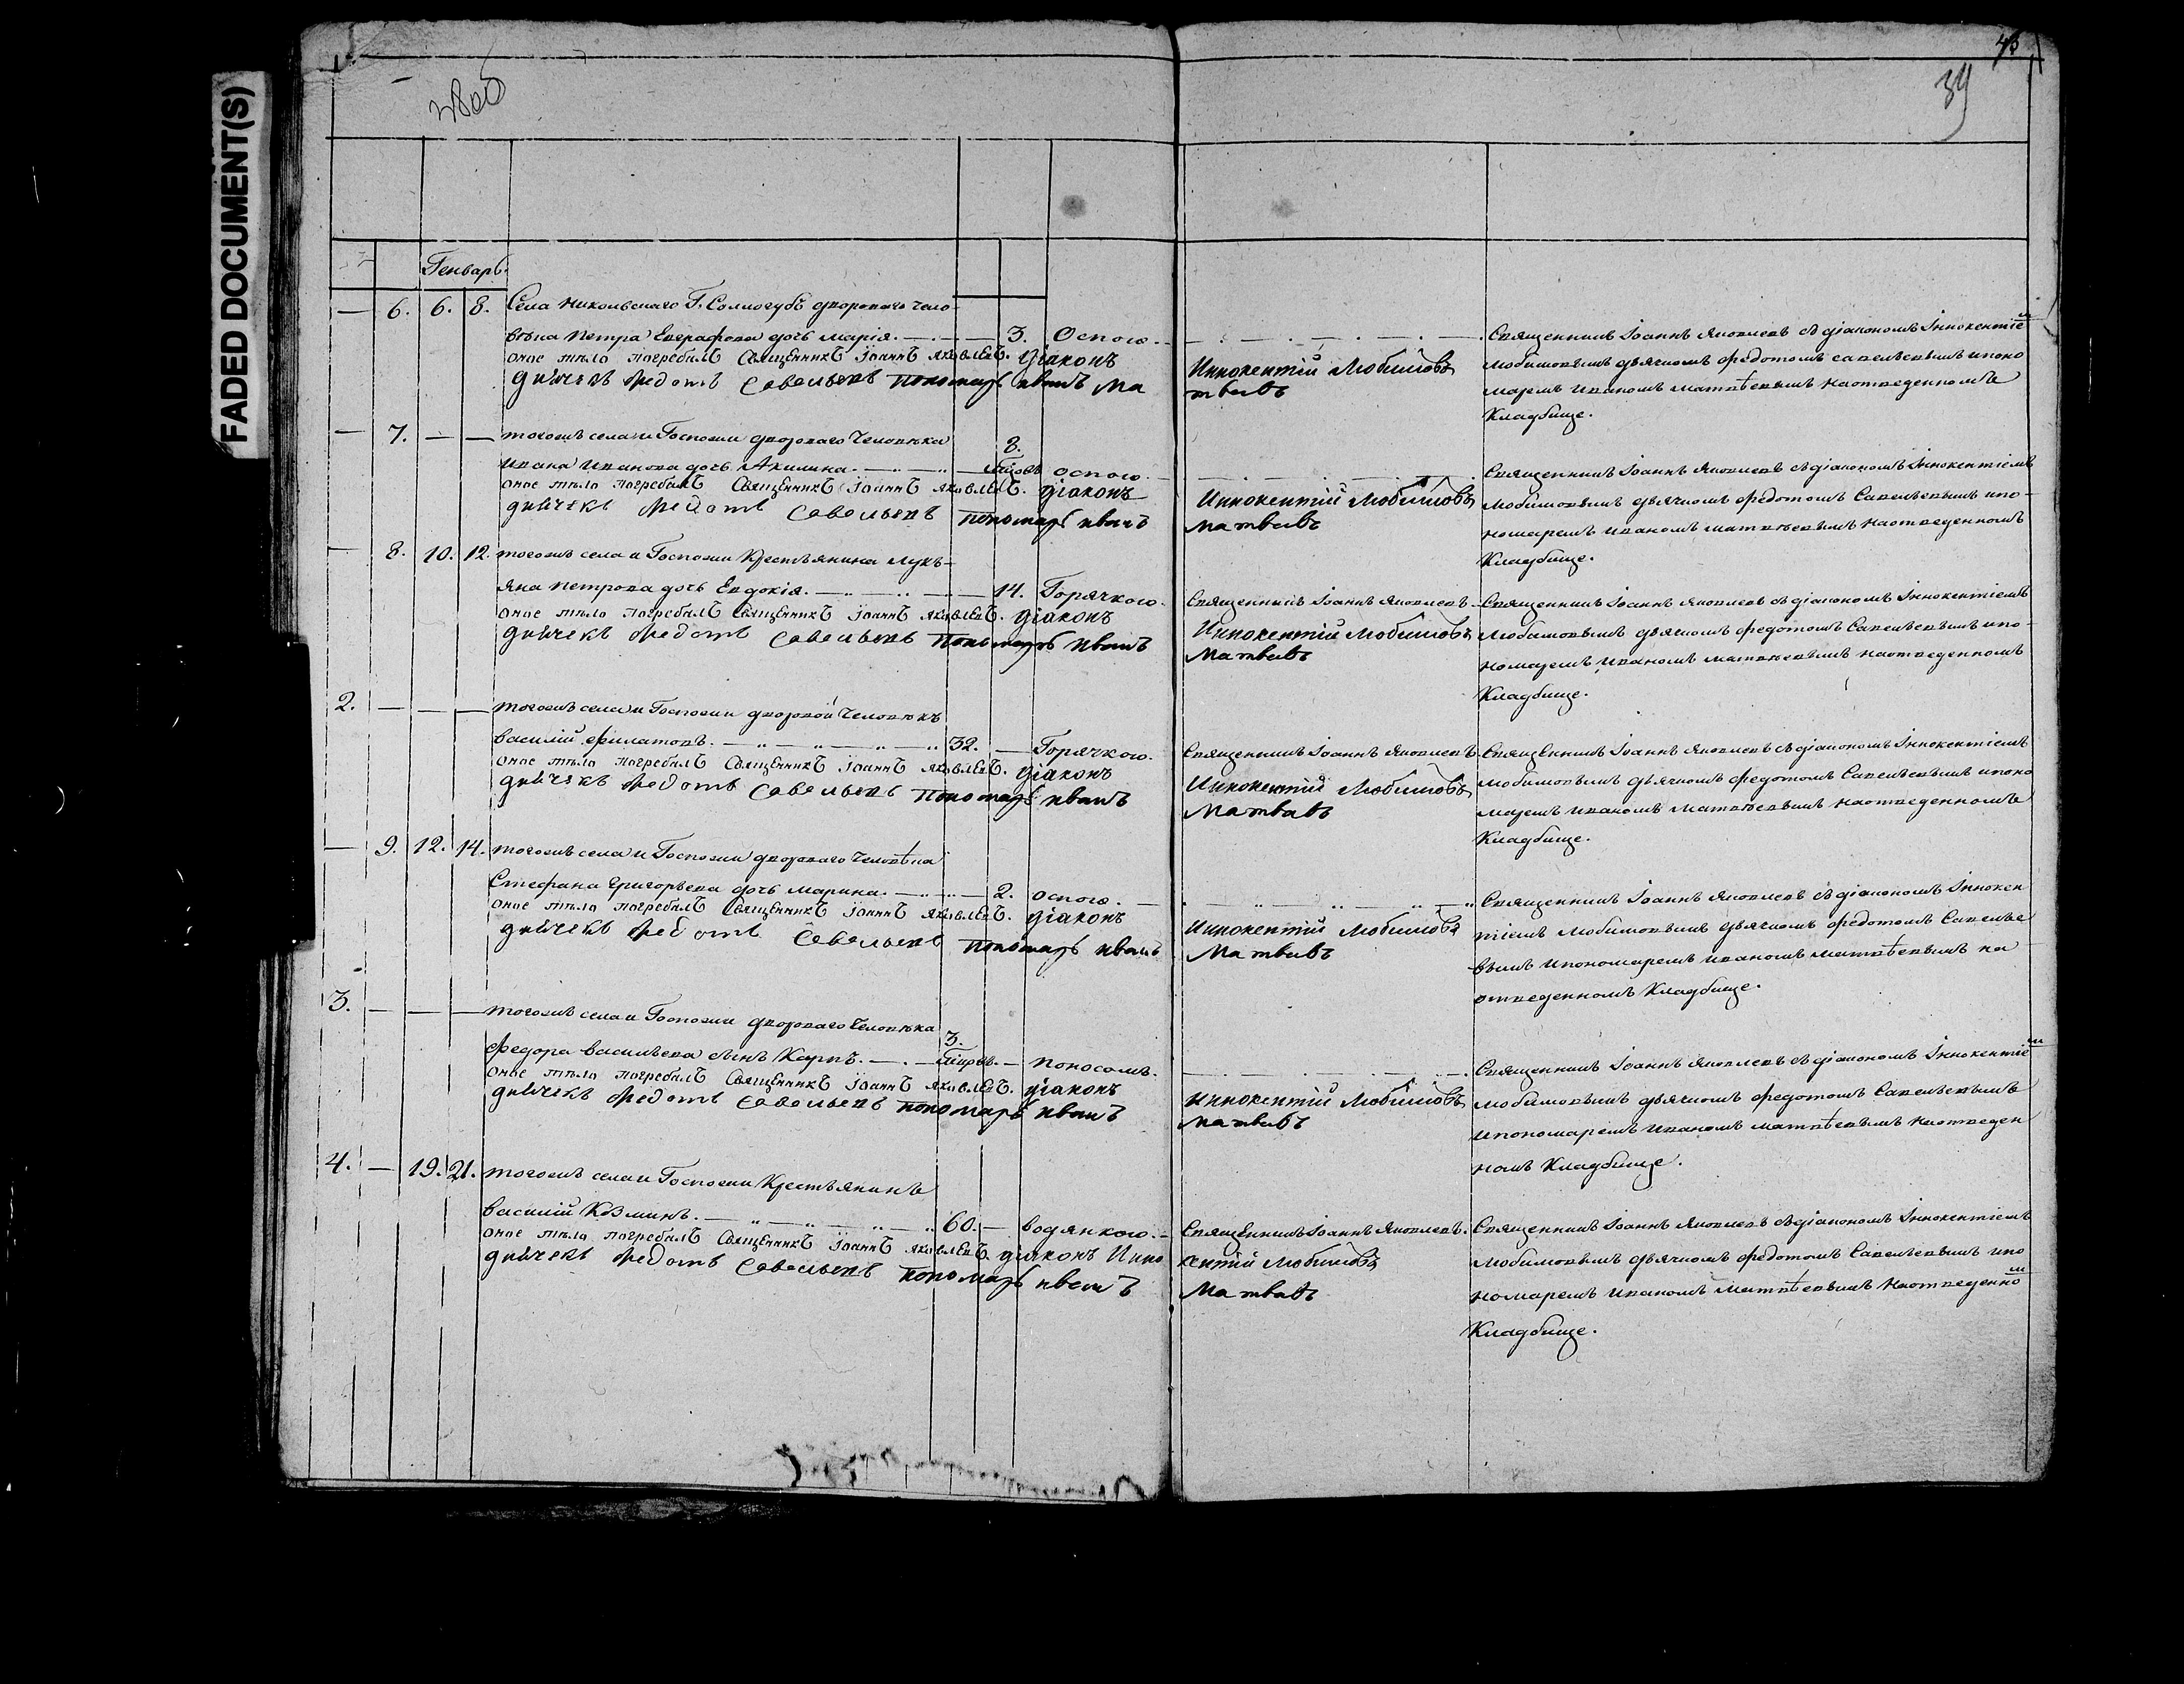 FADED DOCUMENT(S)
38об
45
39
Генварь.
— 6. 6. 8. Села Никольскаго Г. Сологубъ двороваго чело-
вѣка Петра Евграфова дочь Марія. — 3. Оспою.
оное тѣло погребалъ Священникъ Іоаннъ Яковлевъ. Діаконъ Иннокентій Любимовъ
дьячекъ Федотъ Савельевъ пономарь Иванъ Матвеевъ
Священникъ Іоаннъ Яковлевъ съ діакономъ Іннокентіемъ
Любимовымъ дьячкомъ Федотомъ Савельевымъ ипоно
маремъ Иваномъ Матвѣевымъ наотведенномъ
Кладбище.
— 7. — — тогожъ села и Госпожи двороваго Человѣка
8.
Ивана Иванова дочь Акилина. — оспою.
оное тѣло погребалъ Священникъ Іоаннъ Яковлевъ. Діаконъ Иннокентій Любимовъ
дьячекъ Федотъ Савельевъ пономарь Иванъ Матвеевъ
Священникъ Іоаннъ Яковлевъ съ діакономъ Іннокентіемъ
Любимовымъ дьячкомъ Федотомъ Савельевымъ ипо-
номаремъ Иваномъ Матвѣевымъ наотведенномъ
Кладбище.
— 8. 10. 12. тогожъ села и Госпожи Крестьянина Лукь-
яна Петрова дочь Евдокія. — 14. Горячкою.
оное тѣло погребалъ Священникъ Іоаннъ Яковлевъ. Діаконъ
дьячекъ Федотъ Савельевъ пономарь Иванъ
Священникъ Іоаннъ Яковлевъ.
Иннокентій Любимовъ
Матвеевъ
Священникъ Іоаннъ Яковлевъ съ діакономъ Іннокентіемъ
Любимовымъ дьячкомъ Федотомъ Савельевымъ ипо-
номаремъ Иваномъ Матвѣевымъ наотведенномъ
Кладбище.
2. — — — тогожъ села и Госпожи дворовой Человѣкъ
Василій Филатовъ. — 32. — Горячкою.
оное тѣло погребалъ Священникъ Іоаннъ Яковлевъ. Діаконъ
дьячекъ Федотъ Савельевъ пономарь Иванъ
Священникъ Іоаннъ Яковлевъ.
Иннокентій Любимовъ
Матвеевъ
Священникъ Іоаннъ Яковлевъ съ діакономъ Іннокентіемъ
Любимовымъ дьячкомъ Федотомъ Савельевымъ ипоно
маремъ Иваномъ Матвѣевымъ наотведенномъ
Кладбище.
— 9. 12. 14. тогожъ села и Госпожи двороваго Человѣка
Стефана Григорьева дочь Марина. — 2. оспою.
оное тѣло погребалъ Священникъ Іоаннъ Яковлевъ. Діаконъ Иннокентій Любимовъ
дьячекъ Федотъ Савельевъ пономарь Иванъ Матвеевъ
Священникъ Іоаннъ Яковлевъ съ діакономъ Іннокен
тіемъ Любимовымъ дьячкомъ Федотомъ Савелье
вымъ ипономаремъ Иваномъ Матвѣевымъ на
отведенномъ Кладбище.
3. — — — тогожъ села и Госпожи двороваго Человѣка
3.
Федора Васильева сынъ Карпъ. — поносомъ.
оное тѣло погребалъ Священникъ Іоаннъ Яковлевъ. Діаконъ Иннокентій Любимовъ
дьячекъ Федотъ Савельевъ пономарь Иванъ Матвеевъ
Священникъ Іоаннъ Яковлевъ съ діакономъ Іннокентіемъ
Любимовымъ дьячкомъ Федотомъ Савельевымъ
ипономаремъ Иваномъ Матвѣевымъ наотведен
номъ Кладбище.
4. — 19. 21. тогожъ села и Госпожи Крестьянинъ
Василій Козминъ. — 60. — водянкою.
оное тѣло погребалъ Священникъ Іоаннъ Яковлевъ. Діаконъ Инно
дьячекъ Федотъ Савельевъ пономарь Иванъ
Священникъ Іоаннъ Яковлевъ.
кентій Любимовъ
Матвеевъ
Священникъ Іоаннъ Яковлевъ съ діакономъ Іннокентіемъ
Любимовымъ дьячкомъ Федотомъ Савельевымъ ипо
номаремъ Иваномъ Матвѣевымъ наотведенномъ
Кладбище.